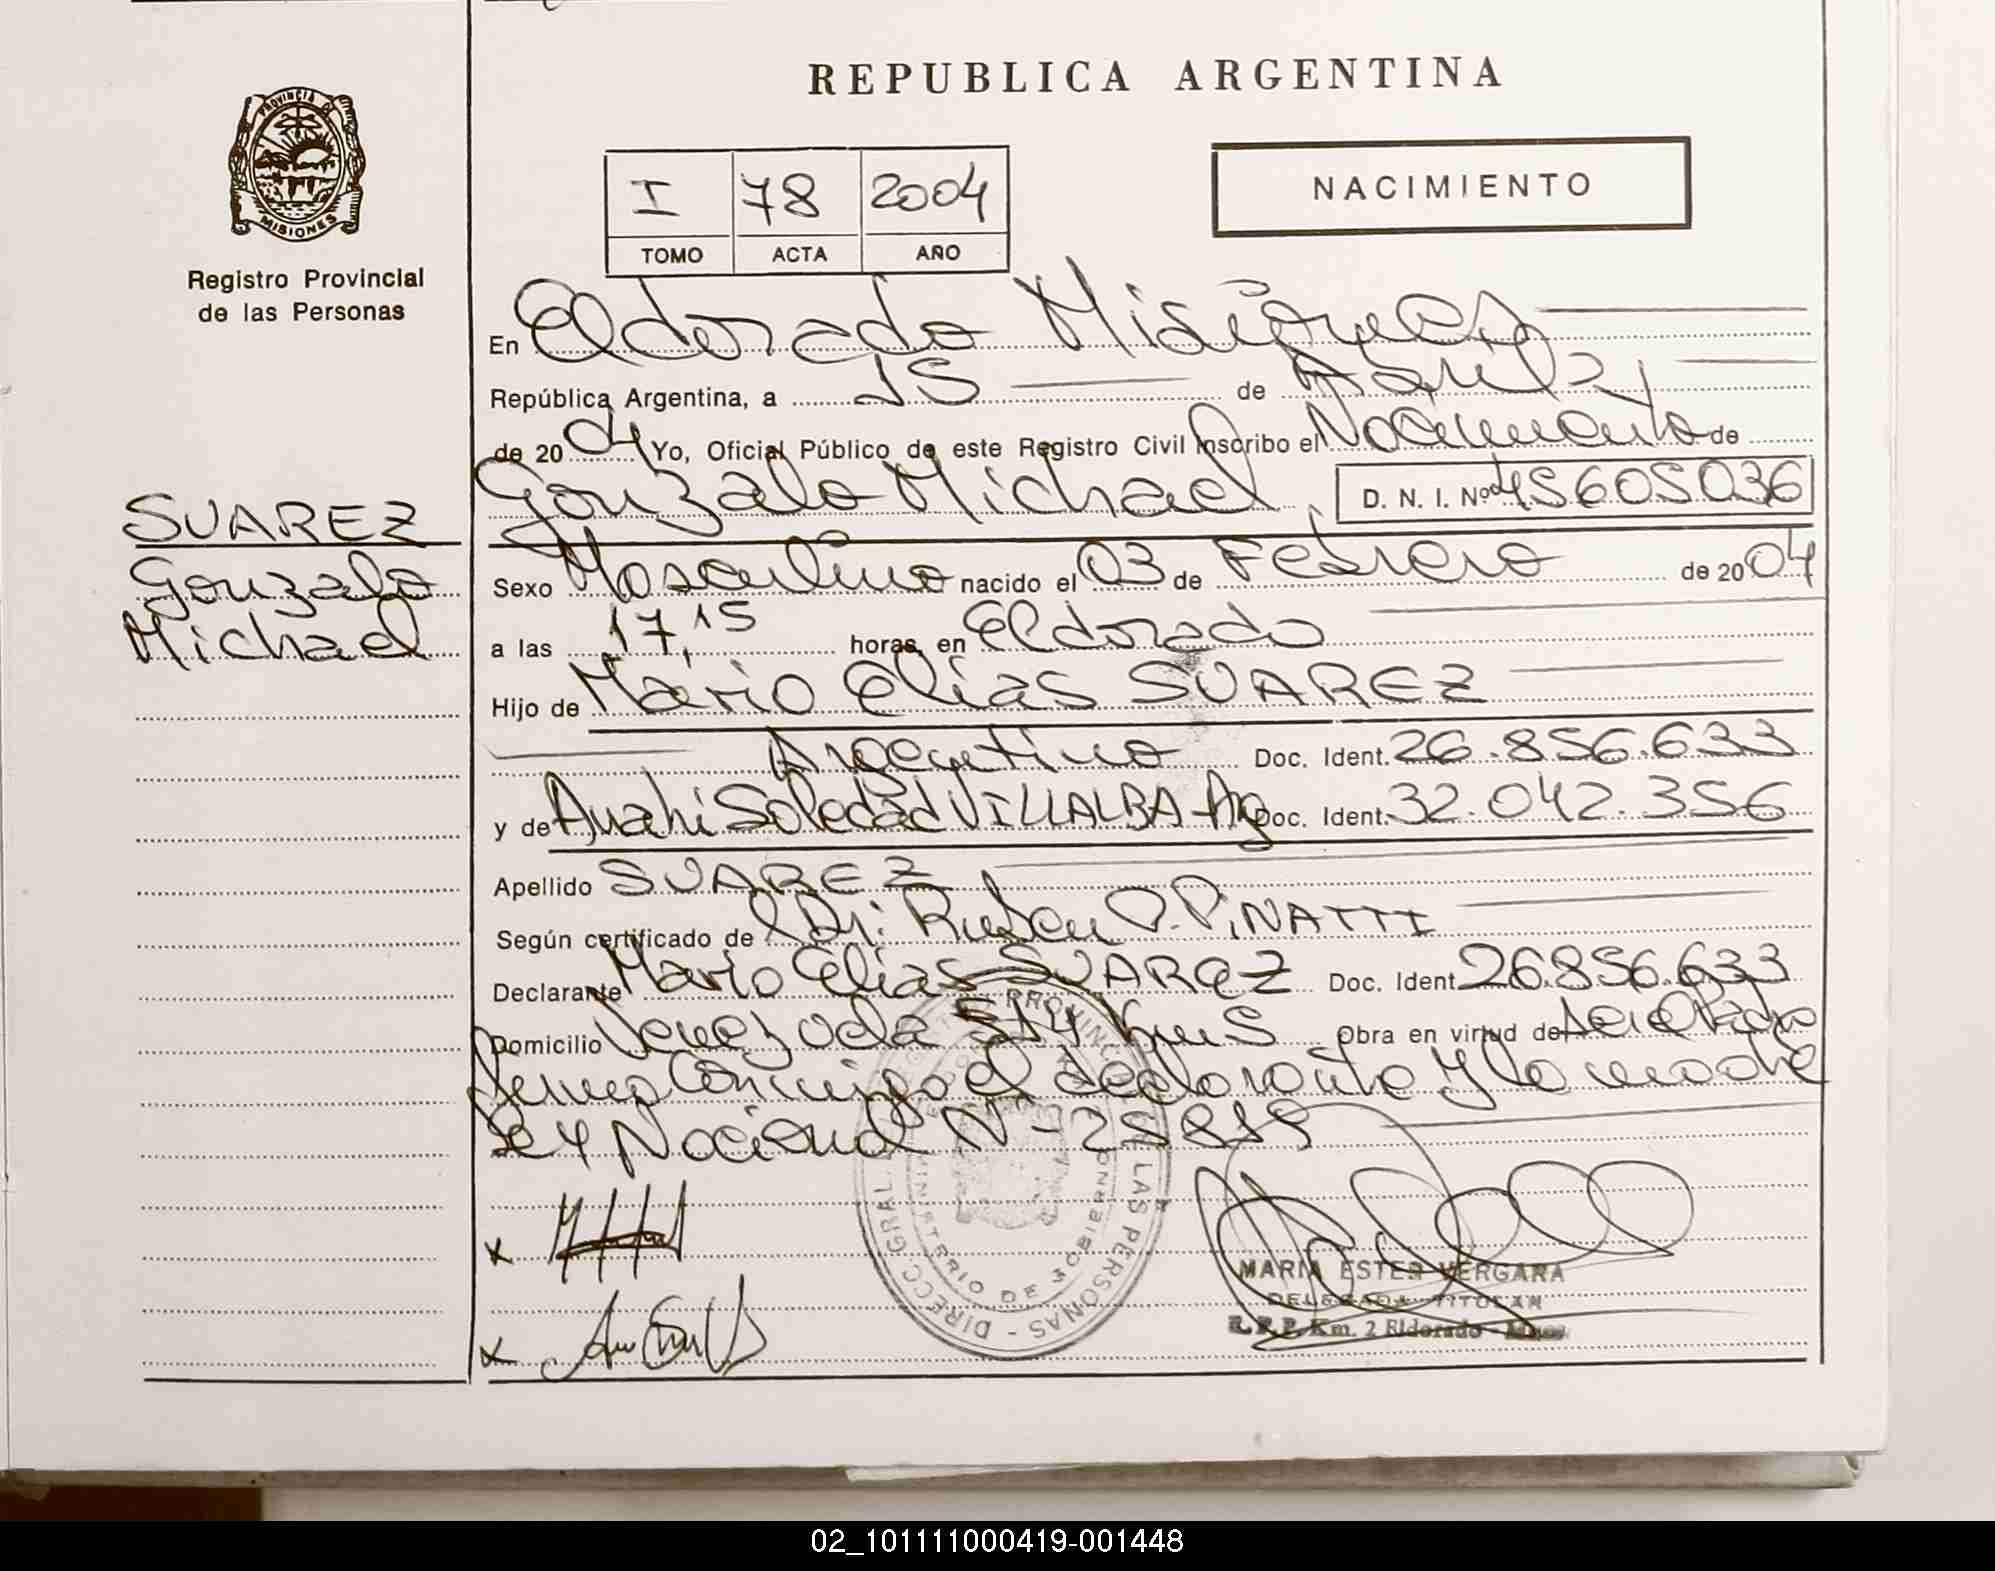 REPUBLICA ARGENTINA
PROVINCIA DE
MISIONES
Registro Provincial
de las Personas
I 78 2004
TOMO ACTA AÑO
NACIMIENTO
En Eldorado Misiones
República Argentina, a 15 de Abril
de 2004 Yo, Oficial Público de este Registro Civil inscribo el Nacimiento de
Gonzalo Michael D. N. I. Nº 45605036
SUAREZ
Gonzalo
Michael
Sexo Masculino nacido el 03 de Febrero de 2004
a las 17,15 horas, en Eldorado
Hijo de Mario Elias SUAREZ
Argentino Doc. Ident. 26.856.633
y de Anahi Soledad VILLALBA Arg Doc. Ident. 32.042.356
Apellido SUAREZ
Según certificado de Dr. Ruben O. PiNATTI
Declarante Mario Elias SUAREZ Doc. Ident 26.856.633
Domicilio Obra en virtud de
firman conmigo el declarante y la madre
Ley Nacional Nº
x
x
DIRECC. GRAL. PROVINC LAS PERSONAS
DE GOBIERNO
MARIA ESTER VERGARA
DELEGADA TITULAR
R.P.P. Km. 2 Eldorado - Mnes.
02_101111000419-001448